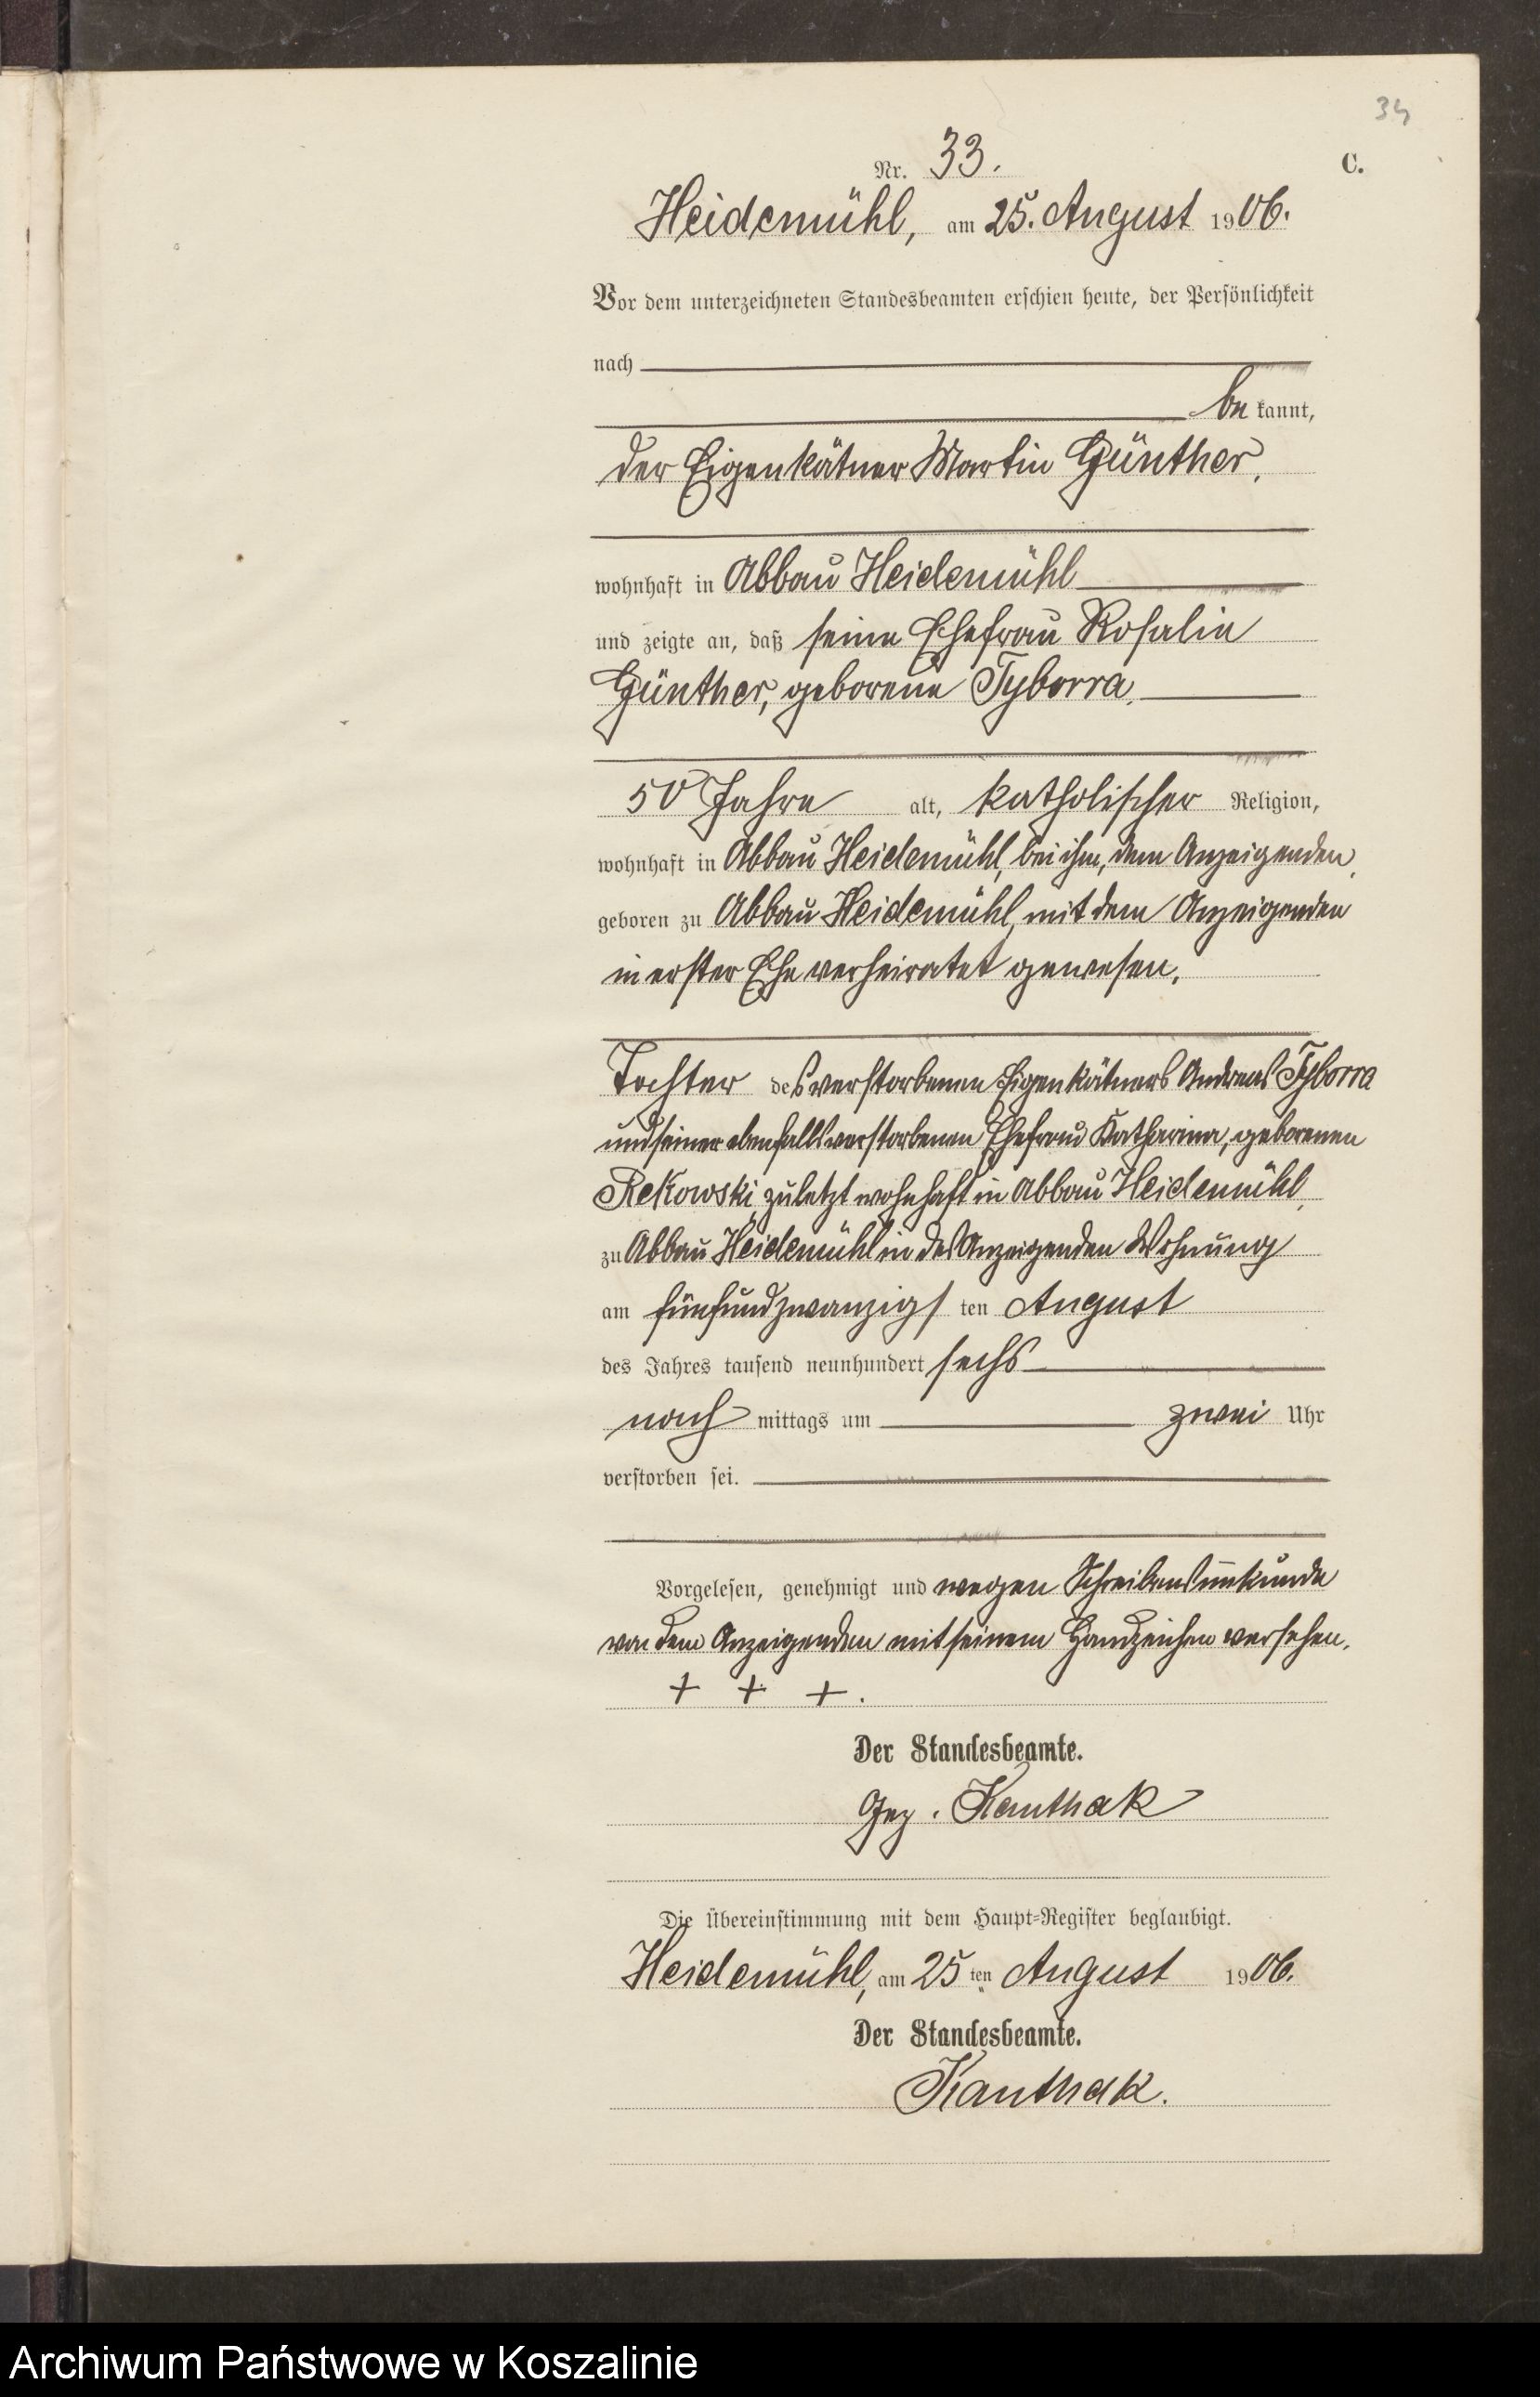 34
C.
Nr. 33.
Heidemühl, am 25. August 1906.
Vor dem unterzeichneten Standesbeamten erschien heute, der Persönlichkeit
nach
be kannt,
der Eigenkätner Martin Günther,
wohnhaft in Abbau Heidemühl
und zeigte an, daß seine Ehefrau Rosalie
Günther, geborene Tyborra,
50 Jahre alt, katholischer Religion,
wohnhaft in Abbau Heidemühl, bei ihm, dem Anzeigenden,
geboren zu Abbau Heidemühl, mit dem Anzeigenden
in erster Ehe verheiratet gewesen,
Tochter des verstorbenen Eigenkätners Andreas Tyborra
und seiner ebenfalls verstorbenen Ehefrau Katharina, geborenen
Rekowski, zuletzt wohnhaft in Abbau Heidemühl,
zu Abbau Heidemühl in des Anzeigenden Wohnung
am fünfundzwanzigs ten August
des Jahres tausend neunhundert sechs
nach mittags um zwei Uhr
verstorben sei.
Vorgelesen, genehmigt und wegen Schreibensunkunde
von dem Anzeigenden mit seinem Handzeichen versehen.
+ + +.
Der Standesbeamte.
Gez. Kanthak
Die Übereinstimmung mit dem Haupt-Register beglaubigt.
Heidemühl, am 25ten August 1906.
Der Standesbeamte.
Kanthak.
Archiwum Państwowe w Koszalinie